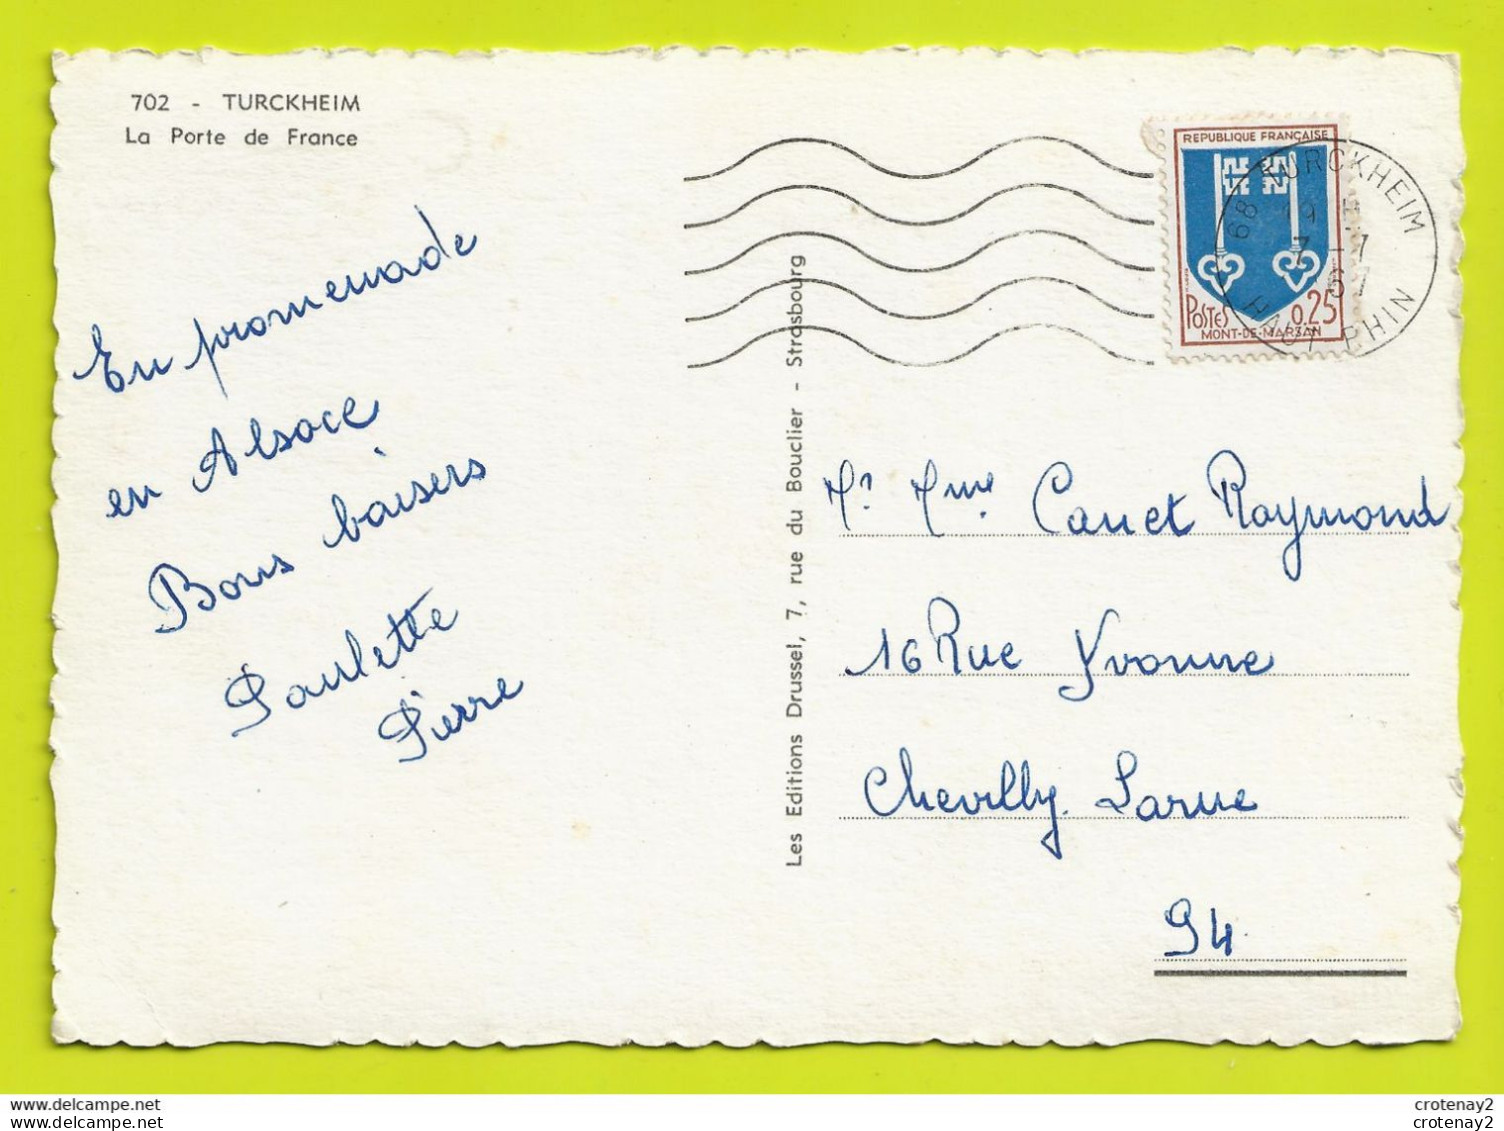 702 - TURCKHEIM
La Porte de France
En promenade
en Alsace
Bons baisers
Paulette
Pierre
Les Editions Drussel, 7, rue du Bouclier - Strasbourg
REPUBLIQUE FRANÇAISE
POSTES 0,25
MONT-DE-MARSAN
68 TURCKHEIM
19 H
7 - 7
67
HAUT RHIN
Mr Mme Canet Raymond
16 Rue Yvonne
Chevilly. Larue
94
delcampe.net
crotenay2
crotenay2